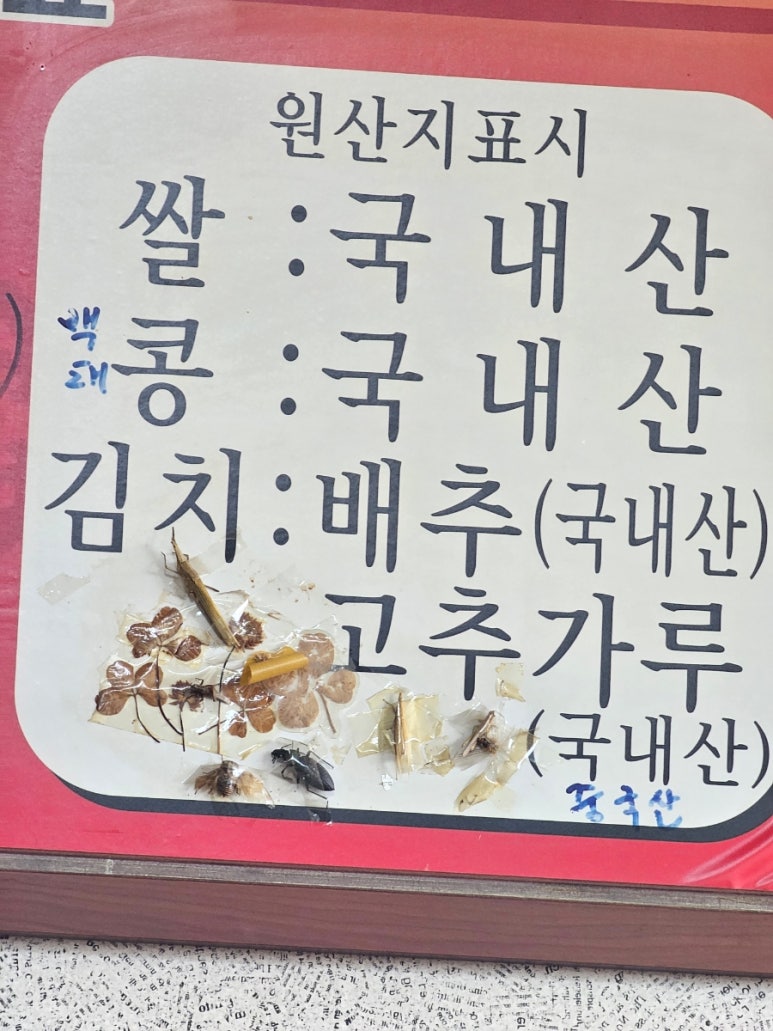 원산지표시
쌀 : 국내산
백태
콩 : 국내산
김치 : 배추(국내산)
고추가루
(국내산)
중국산